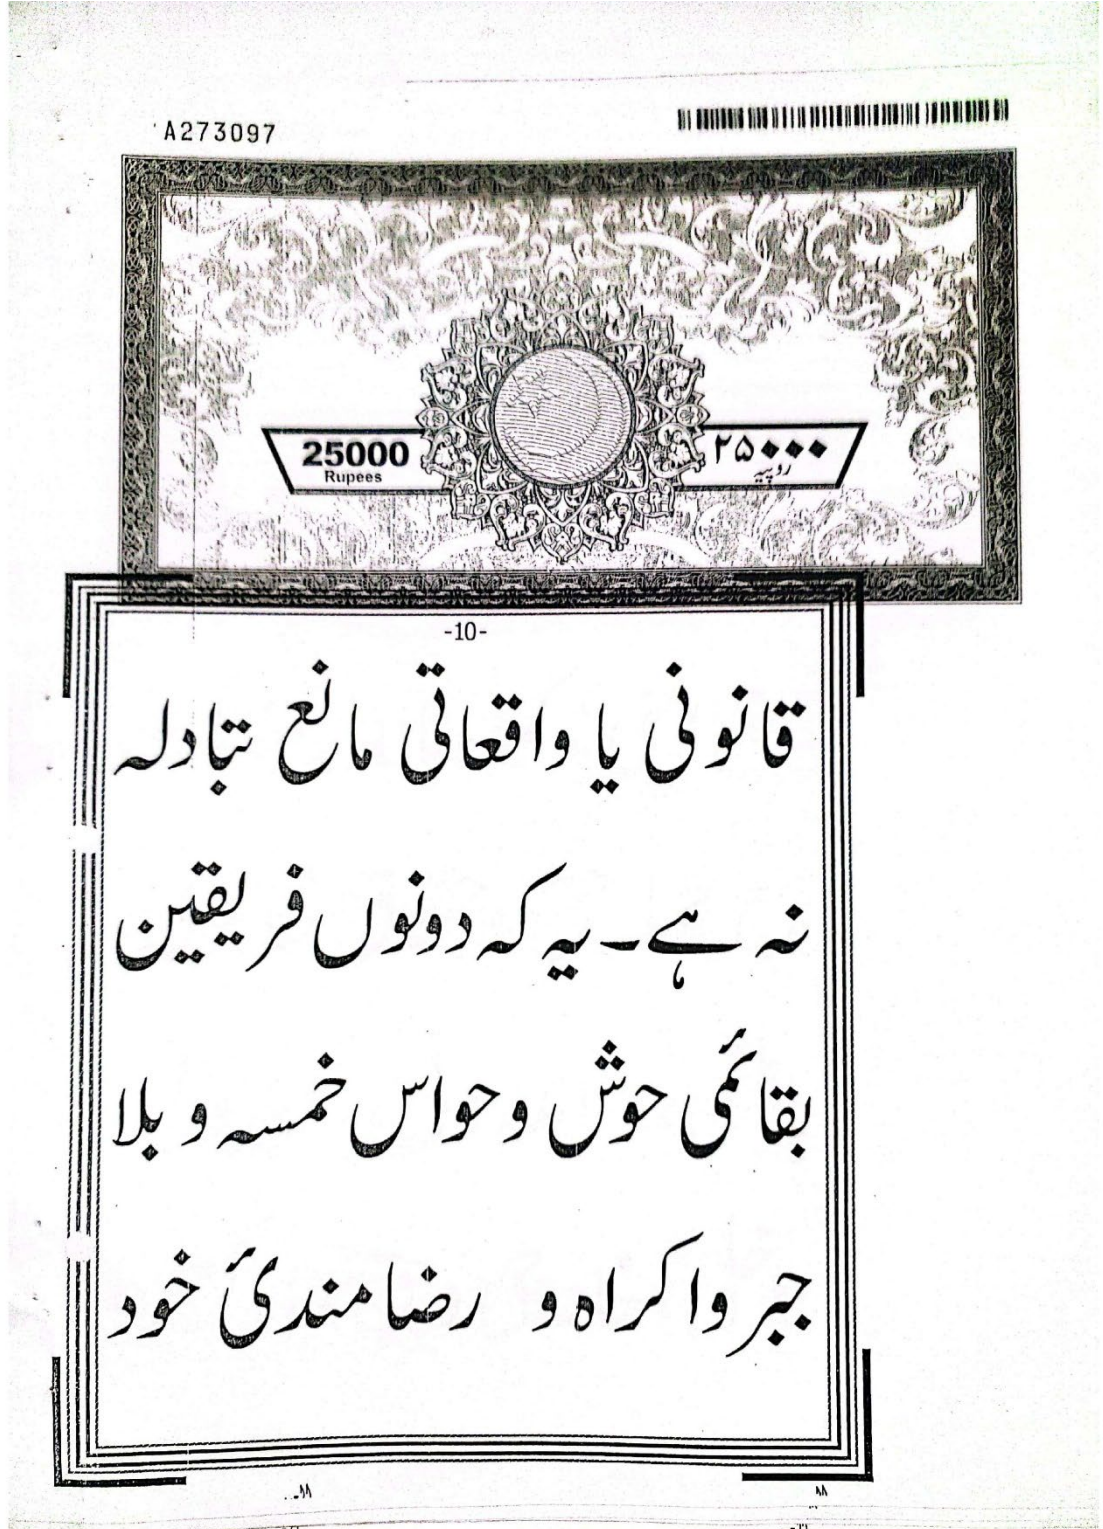 A273097
25000
Rupees
۲۵۰۰۰
روپیہ
-10-
قانونی یا واقعاتی مانع تبادلہ
نہ ہے۔ یہ کہ دونوں فریقین
بقائمی حوش و حواس خمسہ و بلا
جبر و اکراہ و رضا مندئ خود